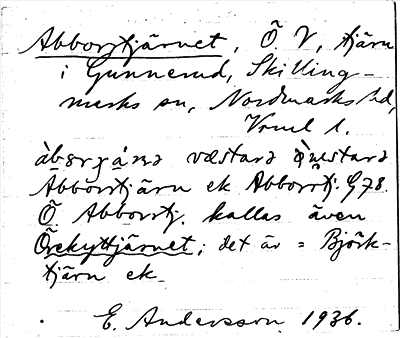 Abborrtjärnet, Ö. V, tjärn
i Gunnerud, Skilling-
marks sn, Nordmarks hd,
Vrml l.
væstarə
Abborrtjärn ek Abborrtj. G78.
Ö Abborrtj. kallas även
Örekyttjärnet; det är = Björk-
tjärn ek
E. Andersson 1936.